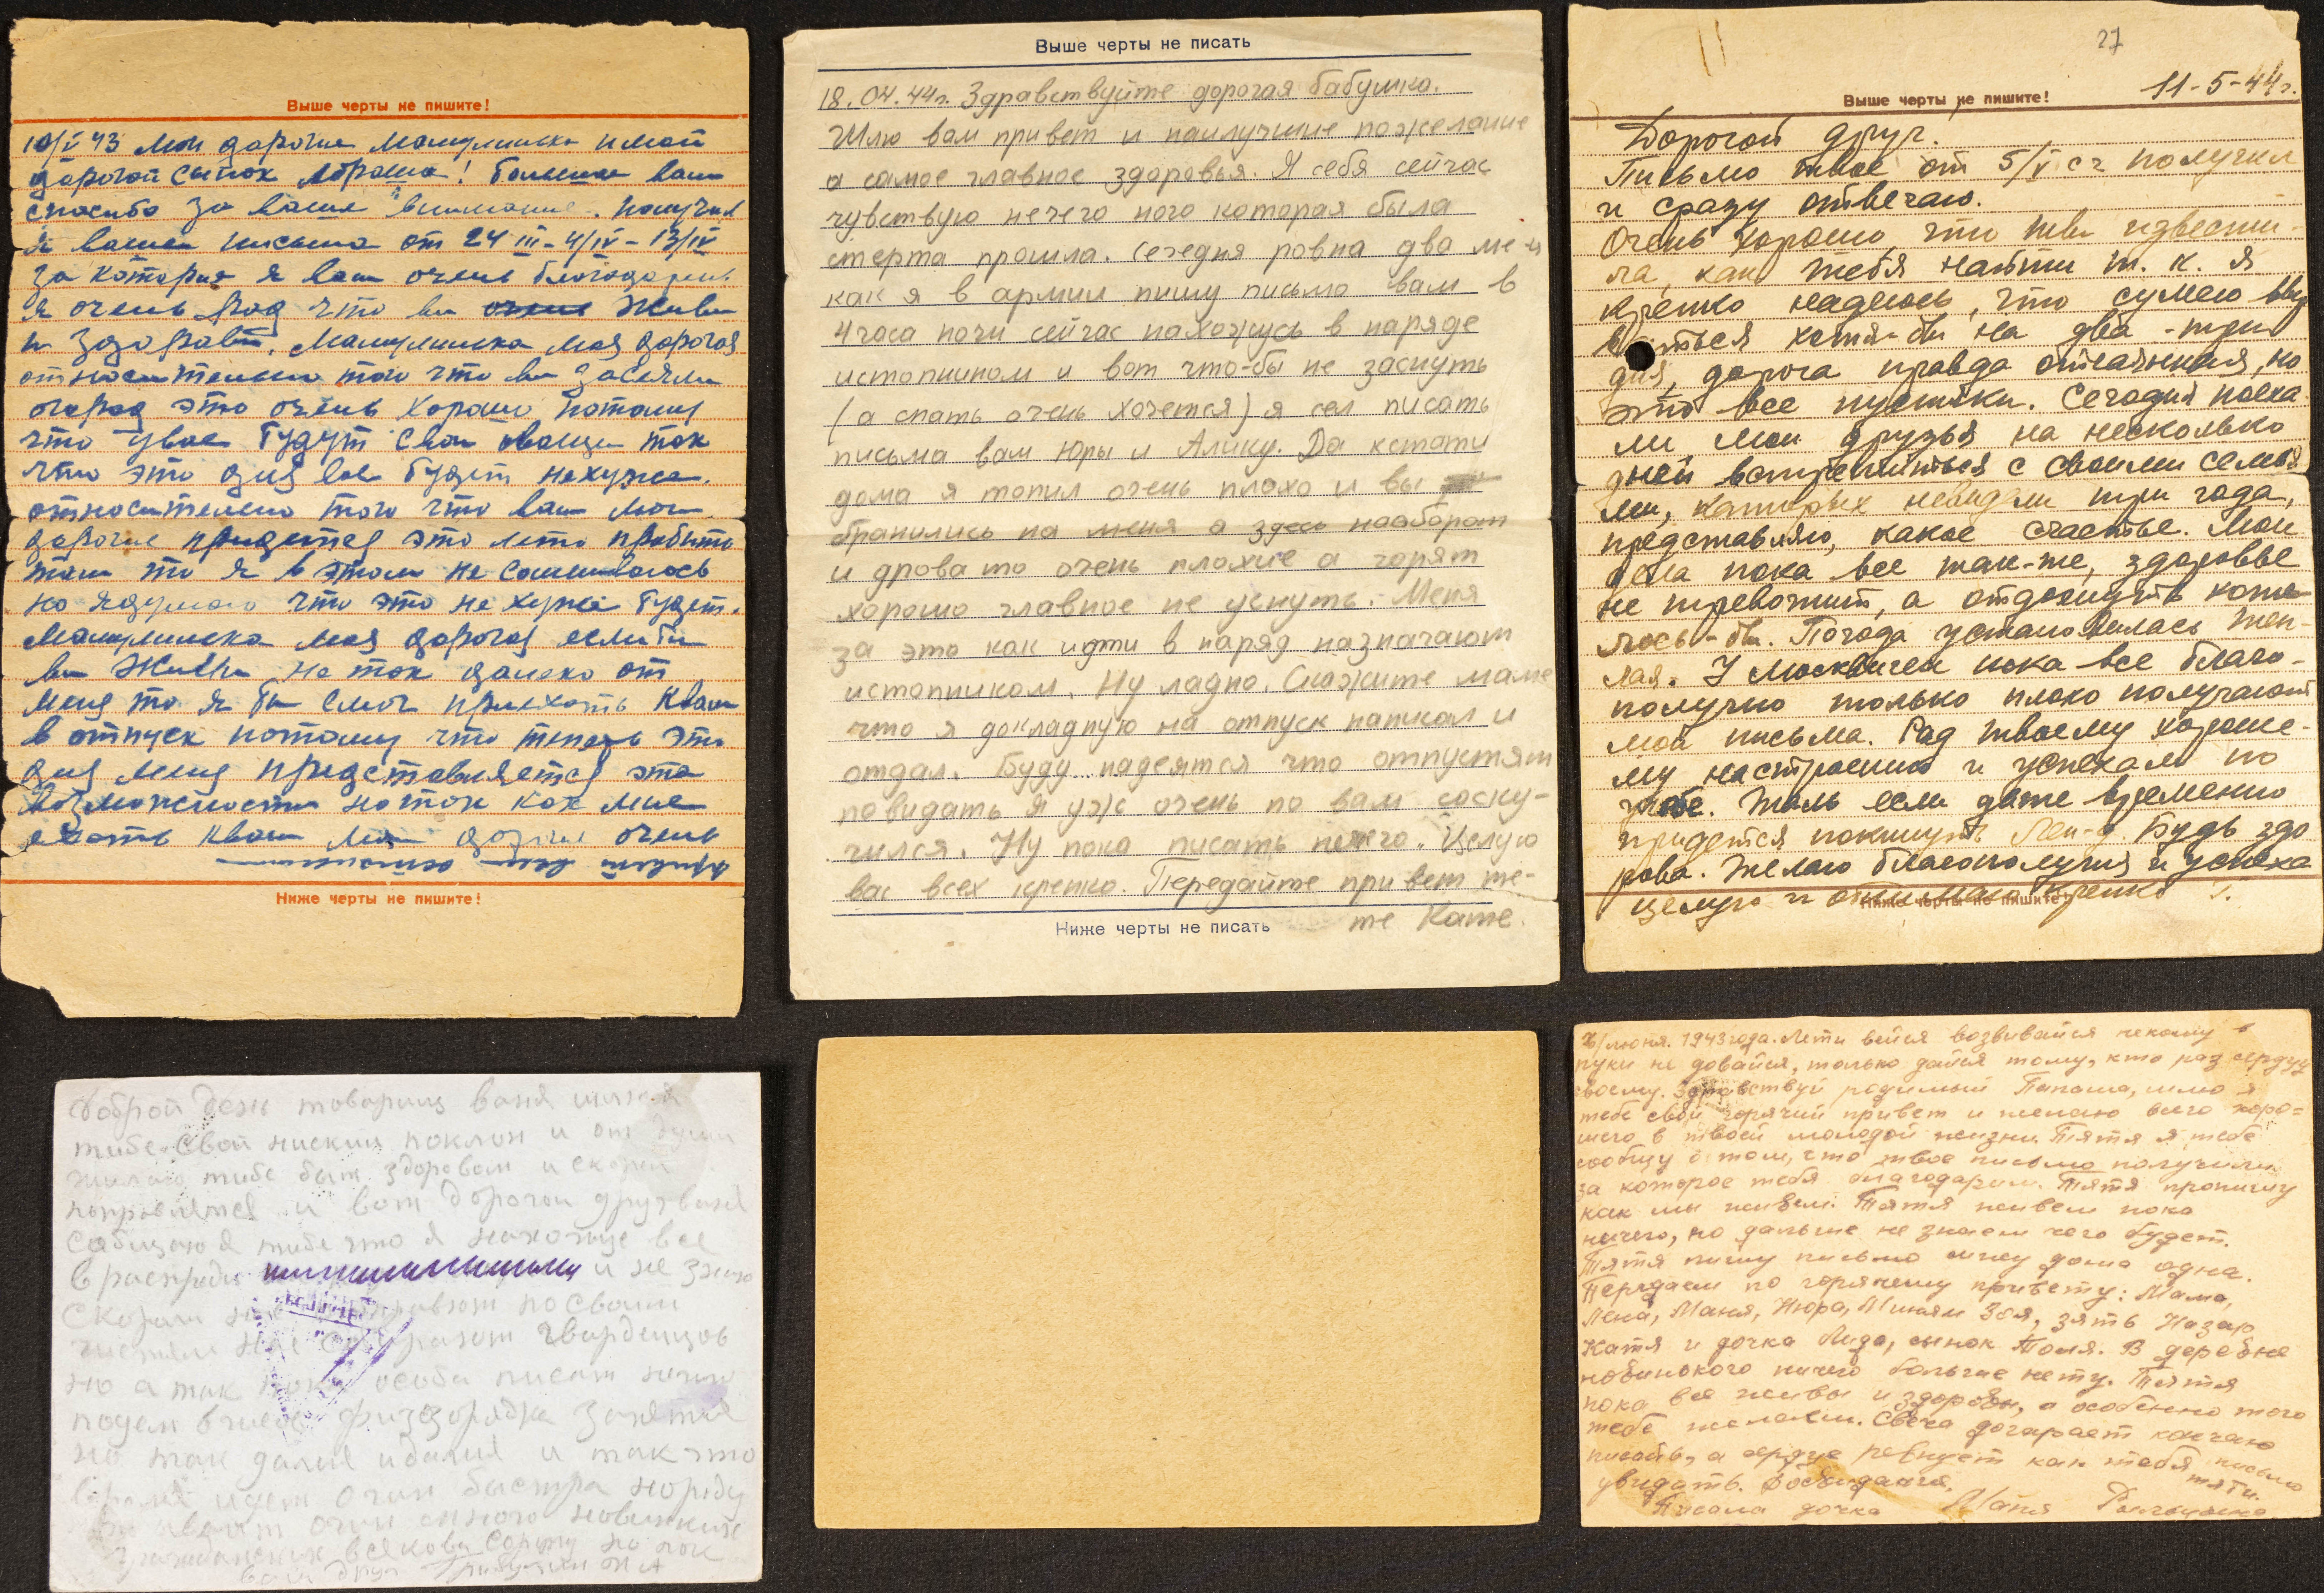 Выше черты не пишите!
10/V 43 Мои дорогие Мамулинька и мой
дорогой сынок Абраша! Большое вам
спасибо за ваше внимание. Получил
я ваши письма от 24 III - 4/IV - 13/IV
за которие я вам очень благодарен.
я очень рад что ви очень живи
и здорови. Мамулинька моя дорогая
относительно того что ви засеяли
огород это очень хорошо потому
что у вас будут свои овощи так
что это для вас будет не хуже.
относительно того что вам мои
дорогие придется это лето пробыть
там то я в этом не сомневаюсь
но я думаю что это не хуже будет.
Мамулинька моя дорогая если би
ви жили не так далеко от
меня то я би смог приехать к вам
в отпуск потому что теперь это
для меня представляется эта
возможности но так как мне
ехать к вам мои дорогие очень
Ниже черты не пишите!
Выше черты не писать
18.04.44г. Здравствуйте дорогая бабушка.
Шлю вам привет и наилучшие пожелание
а самое главное здоровья. Я себя сейчас
чувствую нечего нога которая была
стерта прошла. Сегедня ровна два ме-ц
как я в армии пишу письмо вам в
4 часа ночи сейчас нахожусь в наряде
истопником и вот что-бы не заснуть
(а спать очень хочется) я сел писать
письма вам Юры и Алику. Да кстати
дома я топил очень плохо и вы
бранились на меня а здесь наоборот
и дрова то очень плохие а горят
хорошо главное не уснуть. Меня
за это как идти в наряд назначают
истопником. Ну ладно. Скажите маме
что я докладную на отпуск написал и
отдал. Буду надеятся что отпустят
повидать я уж очень по вам соску-
чился. Ну пока писать нечего. Целую
вас всех крепко. Передайте привет те-
те Кате.
Ниже черты не писать
27
11-5-44г.
Выше черты не пишите!
Дорогой друг.
Письмо твое от 5/V с г получил
и сразу отвечаю.
Очень хорошо, что ты известила,
как тебя найти т. к. я
крепко надеюсь, что сумею выр
ваться хотя-бы на два-три
дня, дорога правда отчаянная, но
это все пустяки. Сегодня поеха
ли мои друзья на несколько
дней встретиться с своими семья
ми, которых невидели три года,
представляю, какое счастье. Мои
дела пока все так-же, здоровье
не тревожит, а отдохнуть хоте
лось-бы. Погода установилась теп-
лая. У москвичей пока все благо-
получно только плохо получают
мои письма. Рад твоему хороше-
му настроению и успехам по
учебе. Жаль если даже временно
придется покинуть Лен-д. Будь здо
рова. Желаю благополучия и успеха
целую и обнимаю крепко
Ниже черты не пишите!
Доброй день товарищ ваня
тибе свой ниский поклон и от души
жилаю тибе быт здоровом и скорей
поправлятся и вот дорогой друг ваня
сабщаю я тибе что я нахожус все
в распреди и не знаю
скоро
гвардейцов
но а так пока особа писат
физзорядка занятия
но так далия и далия и так это
время идет очин быстра
очин много новиньких
гражданских всякова сорту
ваш друг
26/июня. 1943 года. Лети вейся возвивайся некому в
руки не довайся, только дайся тому, кто раз сердцу
своему. Здравствуй родимый Папаша, шлю я
тебе свой горячий привет и желаю всего хоро=
шего в твоей молодой жизни. Тятя я тебе
сообщу о том, что твое письмо получили
за которое тебя благодарим. Тятя пропишу
как мы живем. Тятя живем пока
ничего, но дальше не знаем чего будет.
Тятя пишу письмо сижу дома одна.
Передаем по горячему привету: Мама,
Лена, Маня, Нюра, Зоя, зять Назар
Катя и дочка Лиза, сынок Толя. В деревне
нобинокого ничего больше нету. Тятя
пока все живы и здоровы, а особенно того
тебе желаем. Свеча догарает кончаю
писать, а сердце ревнует как тебя
увидать. Досвидания, тятя.
Писала дочка